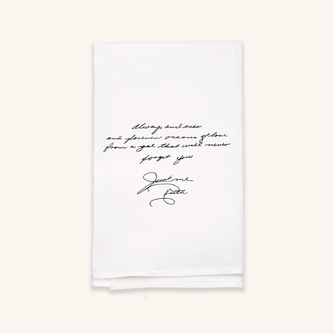 Always and ever
and forever oceans of love
from a gal that will never
forget you
Just me